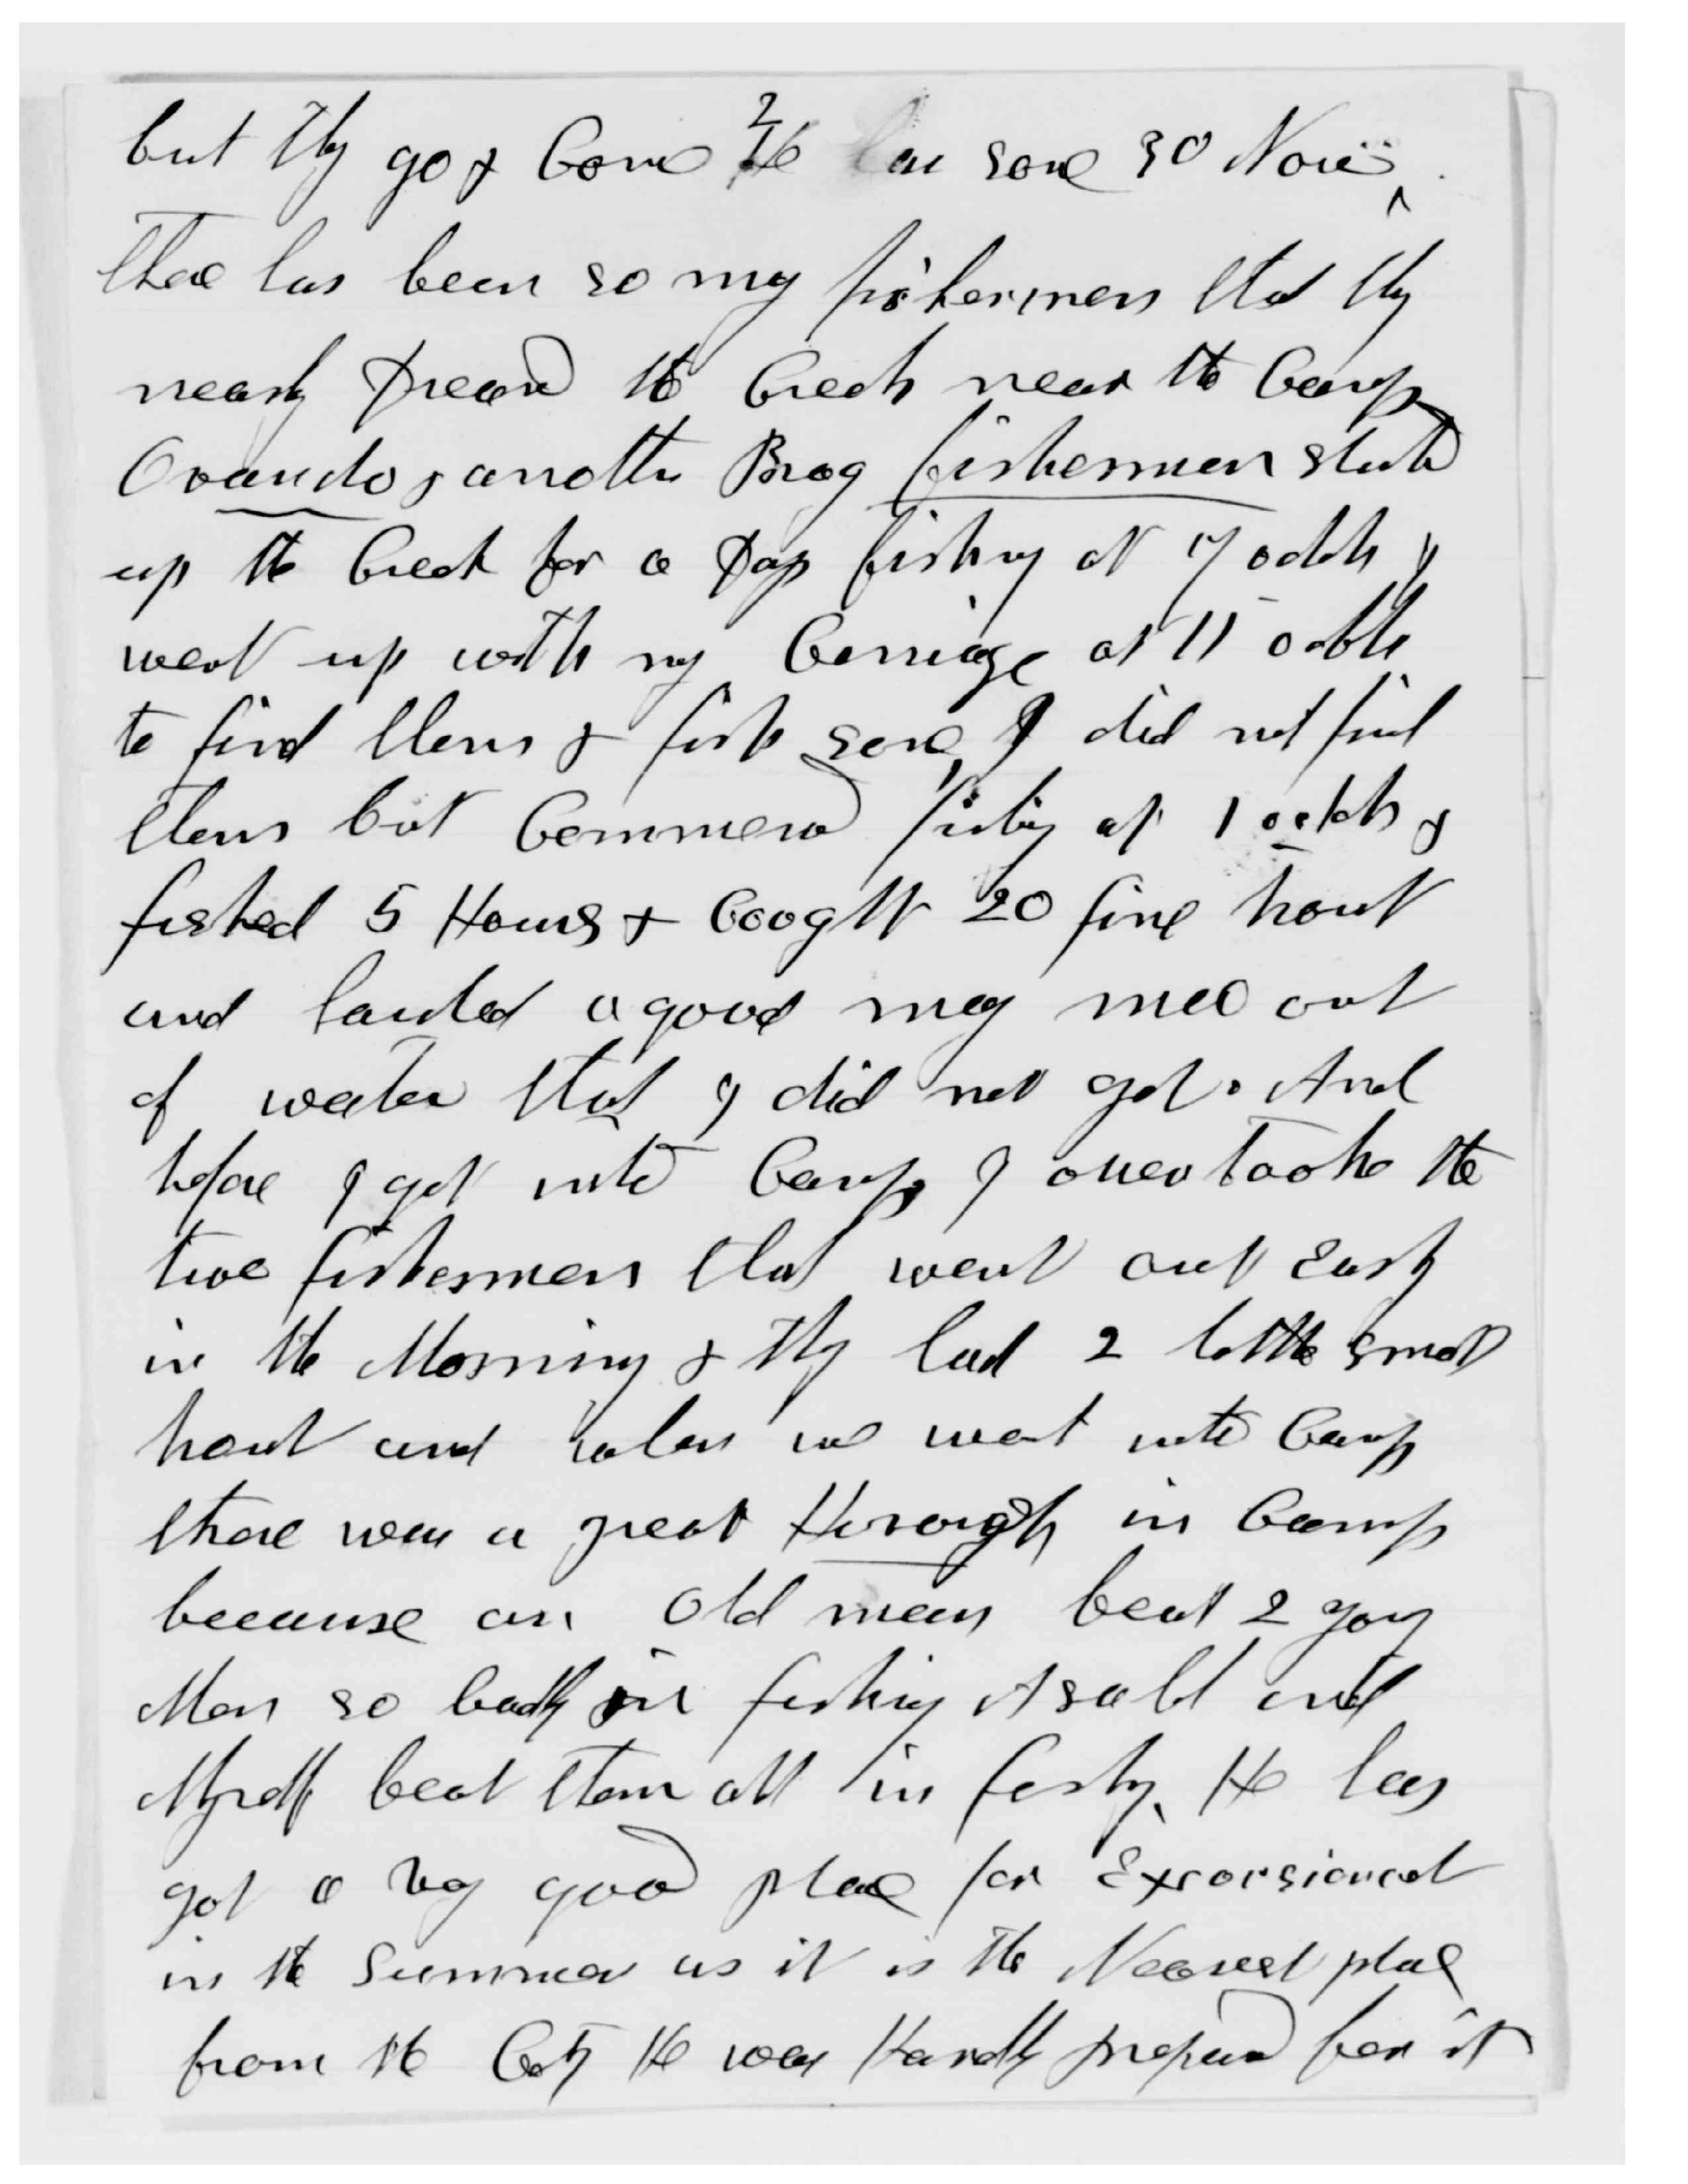 but thy go & Come 2 He has some 30 Now
thare has been so my fishermen that thy
nearly the Creek near the Camp
Ovando & another Brag fishermen started
up the Creek for a Day fishing at 7 oclok I
went up with my Carriage at 11 oclok
to find them & fish some, I did not find
them but Commenced fishing at 1 oclok &
fished 5 Hours & Cooght 20 fine trout
and landed a good meny out
of water that I did not get. And
before I got into Camp I overtooke the
two fishermen that went out Early
in the Morning & thy had 2 little small
trout and when we went into Camp
thare was a great Hurough in Camp
because an Old man beat 2 yong
Men so badly in fishing Asahl and
Myself beat them all in fishing. He has
got a very good place for Excorsionest
in the Summer as it is the Nearest place
from the City He was Hardly prepared for it